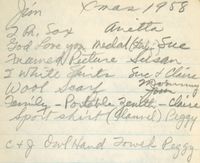 Jim Xmas 1958
2 Pr. Sox Arietta
God Love you Medal (Stg) Sue
Framed Picture Susan
2 White Shirts Sue & Claire
Wool Scarf Mommy
Tom
Family - Portable Zenith - Claire
Sport shirt (Flannel) Peggy
C & J Owl Hand Towels Peggy